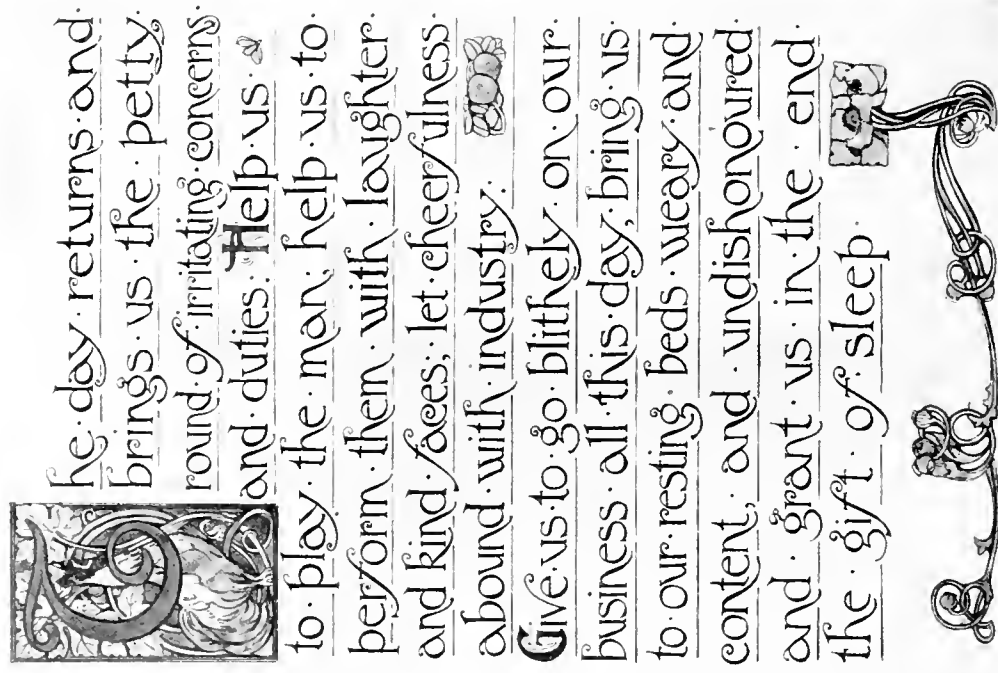 The · day · returns · and ·
brings · us · the · petty ·
round · of · irritating · concerns ·
and · duties · Help · us ·
to · play · the · man; help · us · to ·
perform · them · with · laughter
and kind · faces; let · cheerfulness
abound · with · industry ·
Give · us · to · go · blithely · on · our ·
business · all · this · day; bring · us ·
to · our · resting · beds · weary · and
content, · and · undishonoured
and · grant · us · in · the · end
the · gift · of · sleep ·